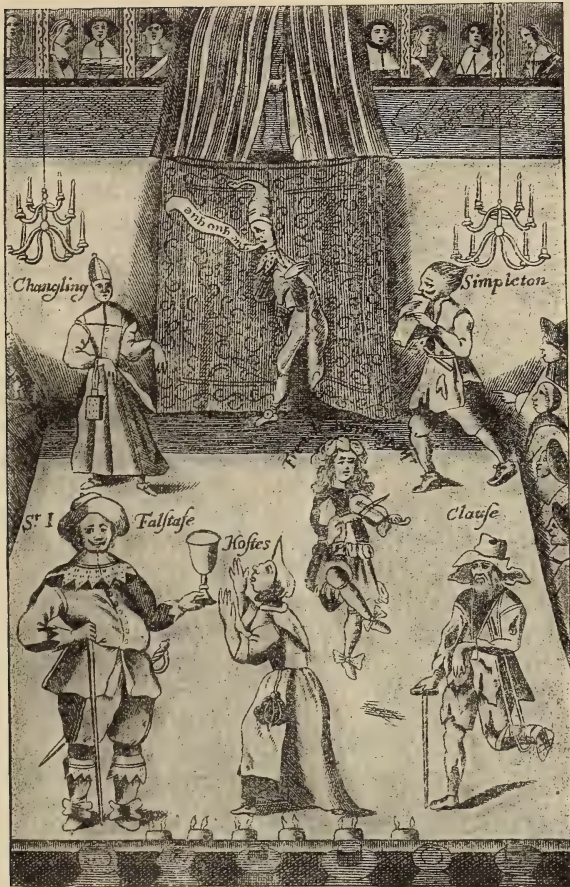 Tu quo que
Changling
Simpleton
Sr I Falſtafe
Hoſtes
Clauſe